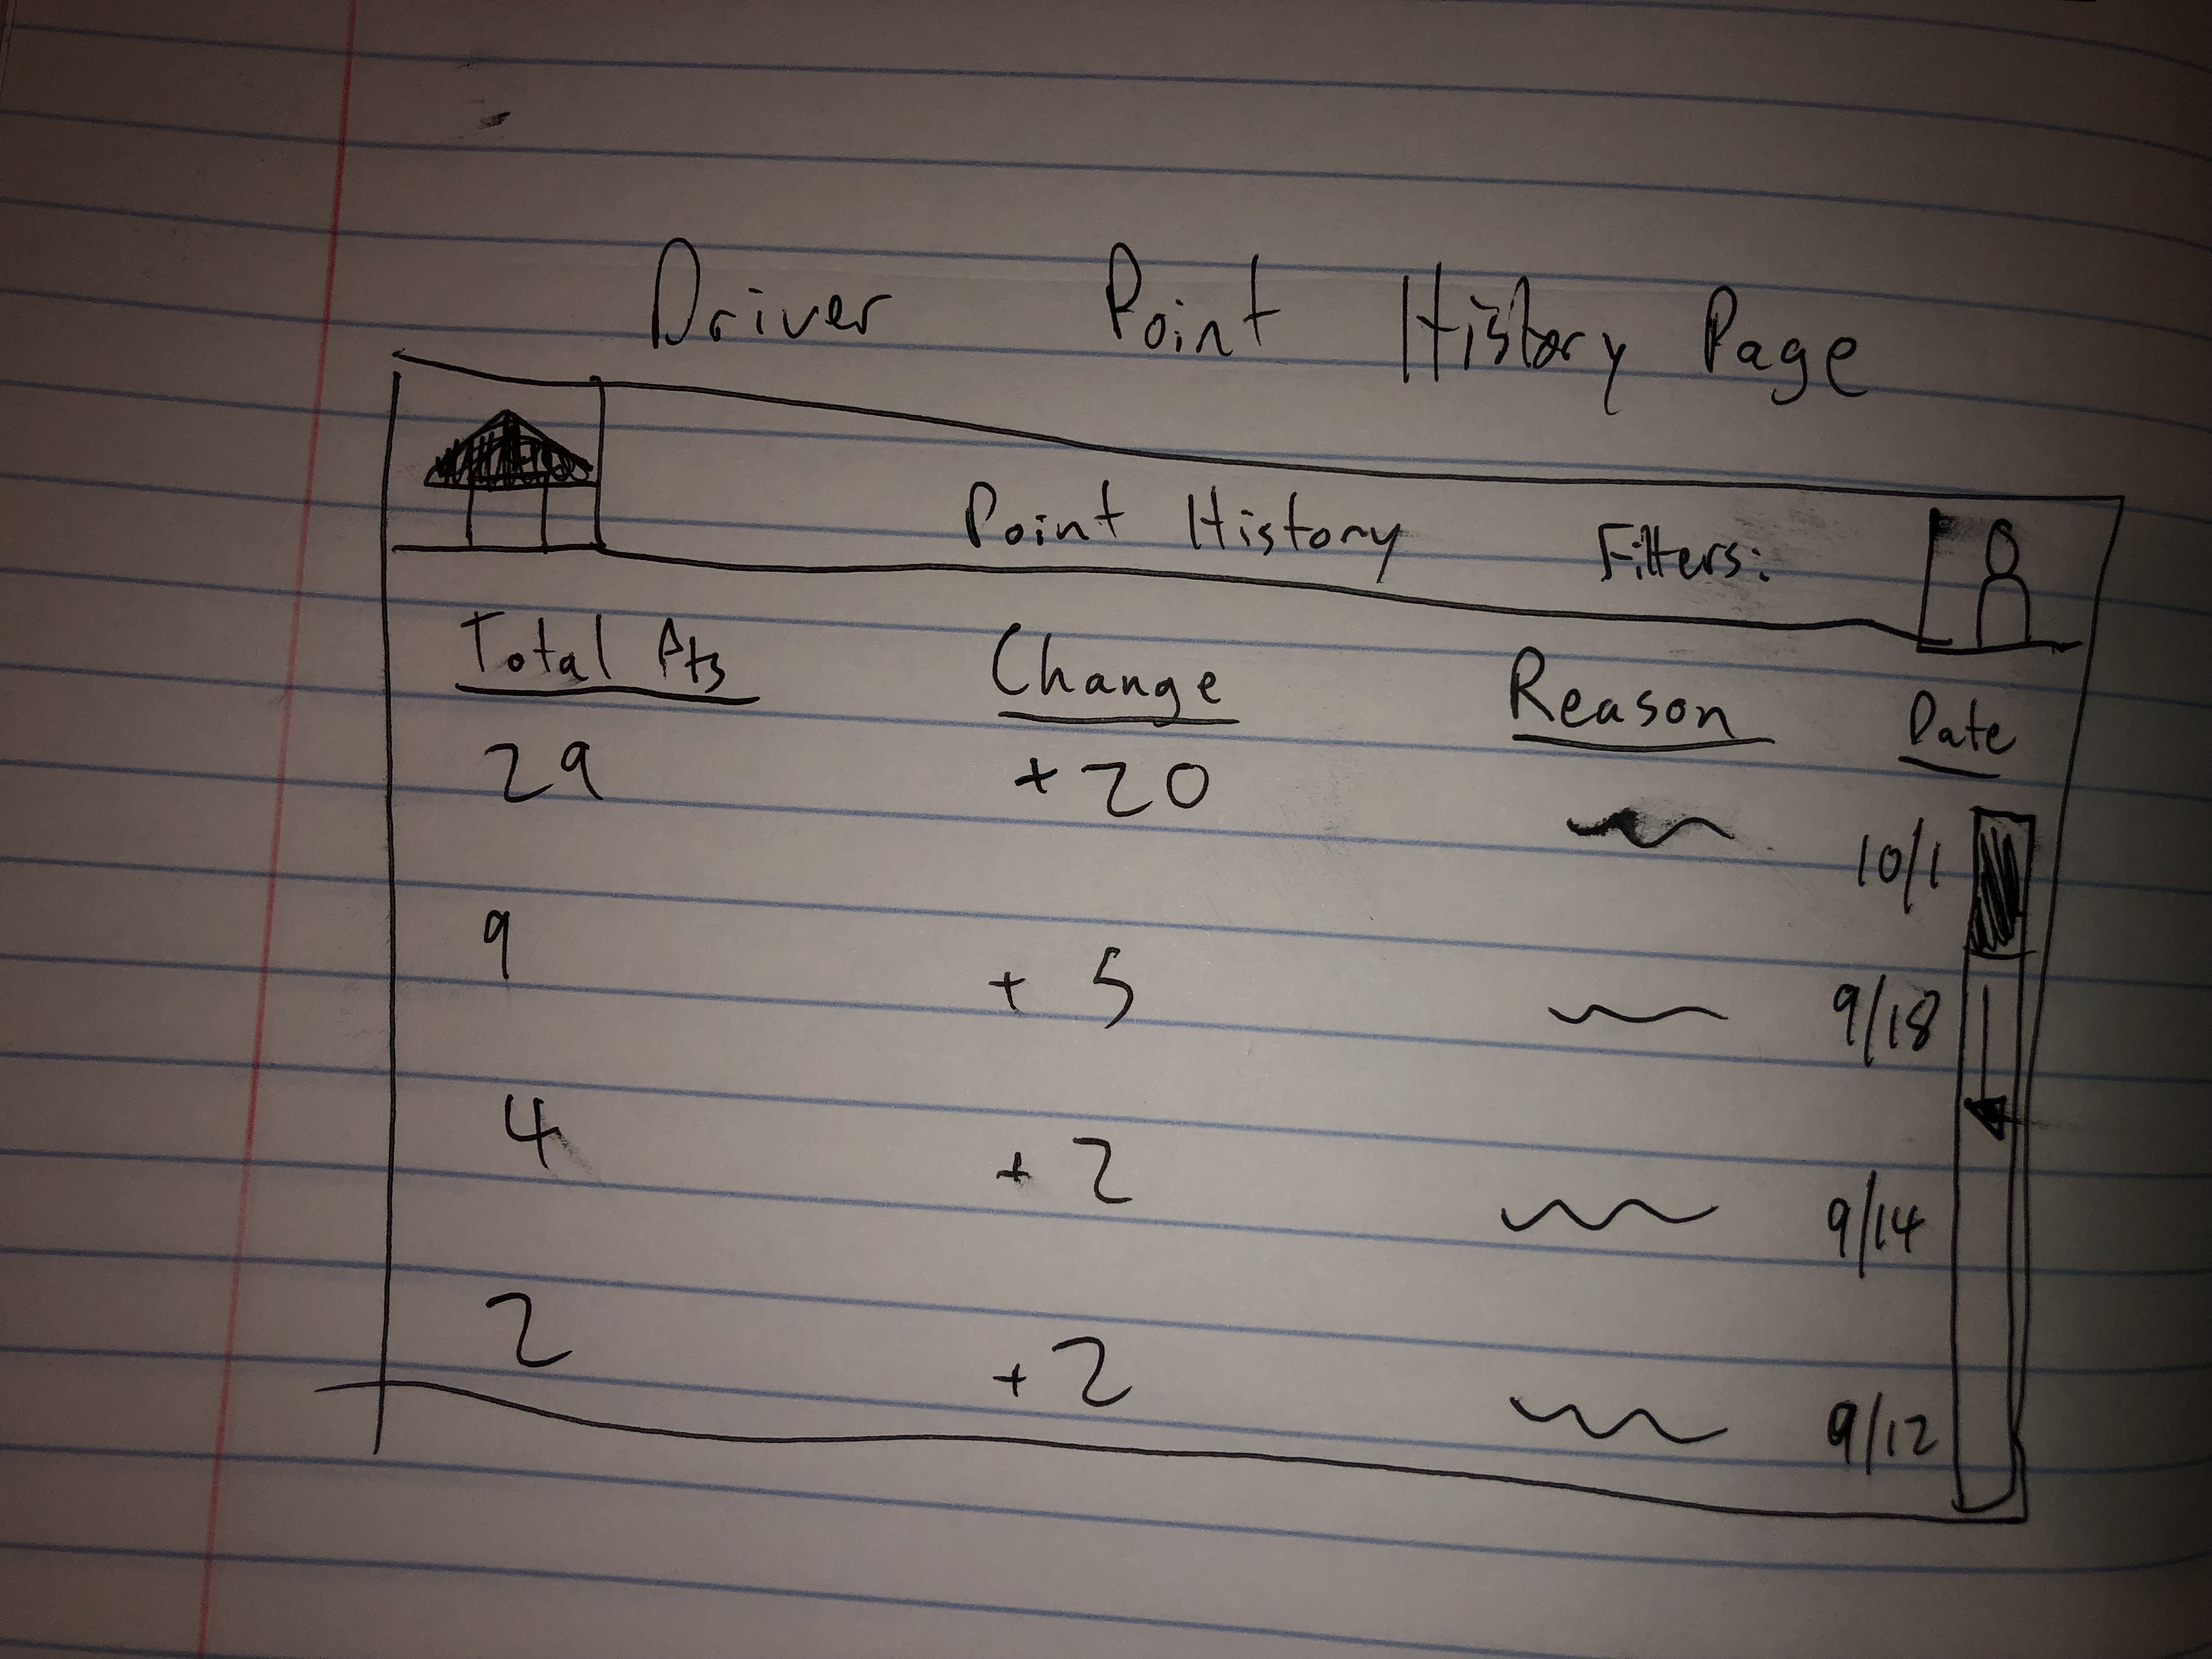 Driver Point History Page
Point History Filters:
Total Pts Change Reason Date
29 +20 10/1
9 +5 9/18
4 +2 9/14
2 +2 9/12